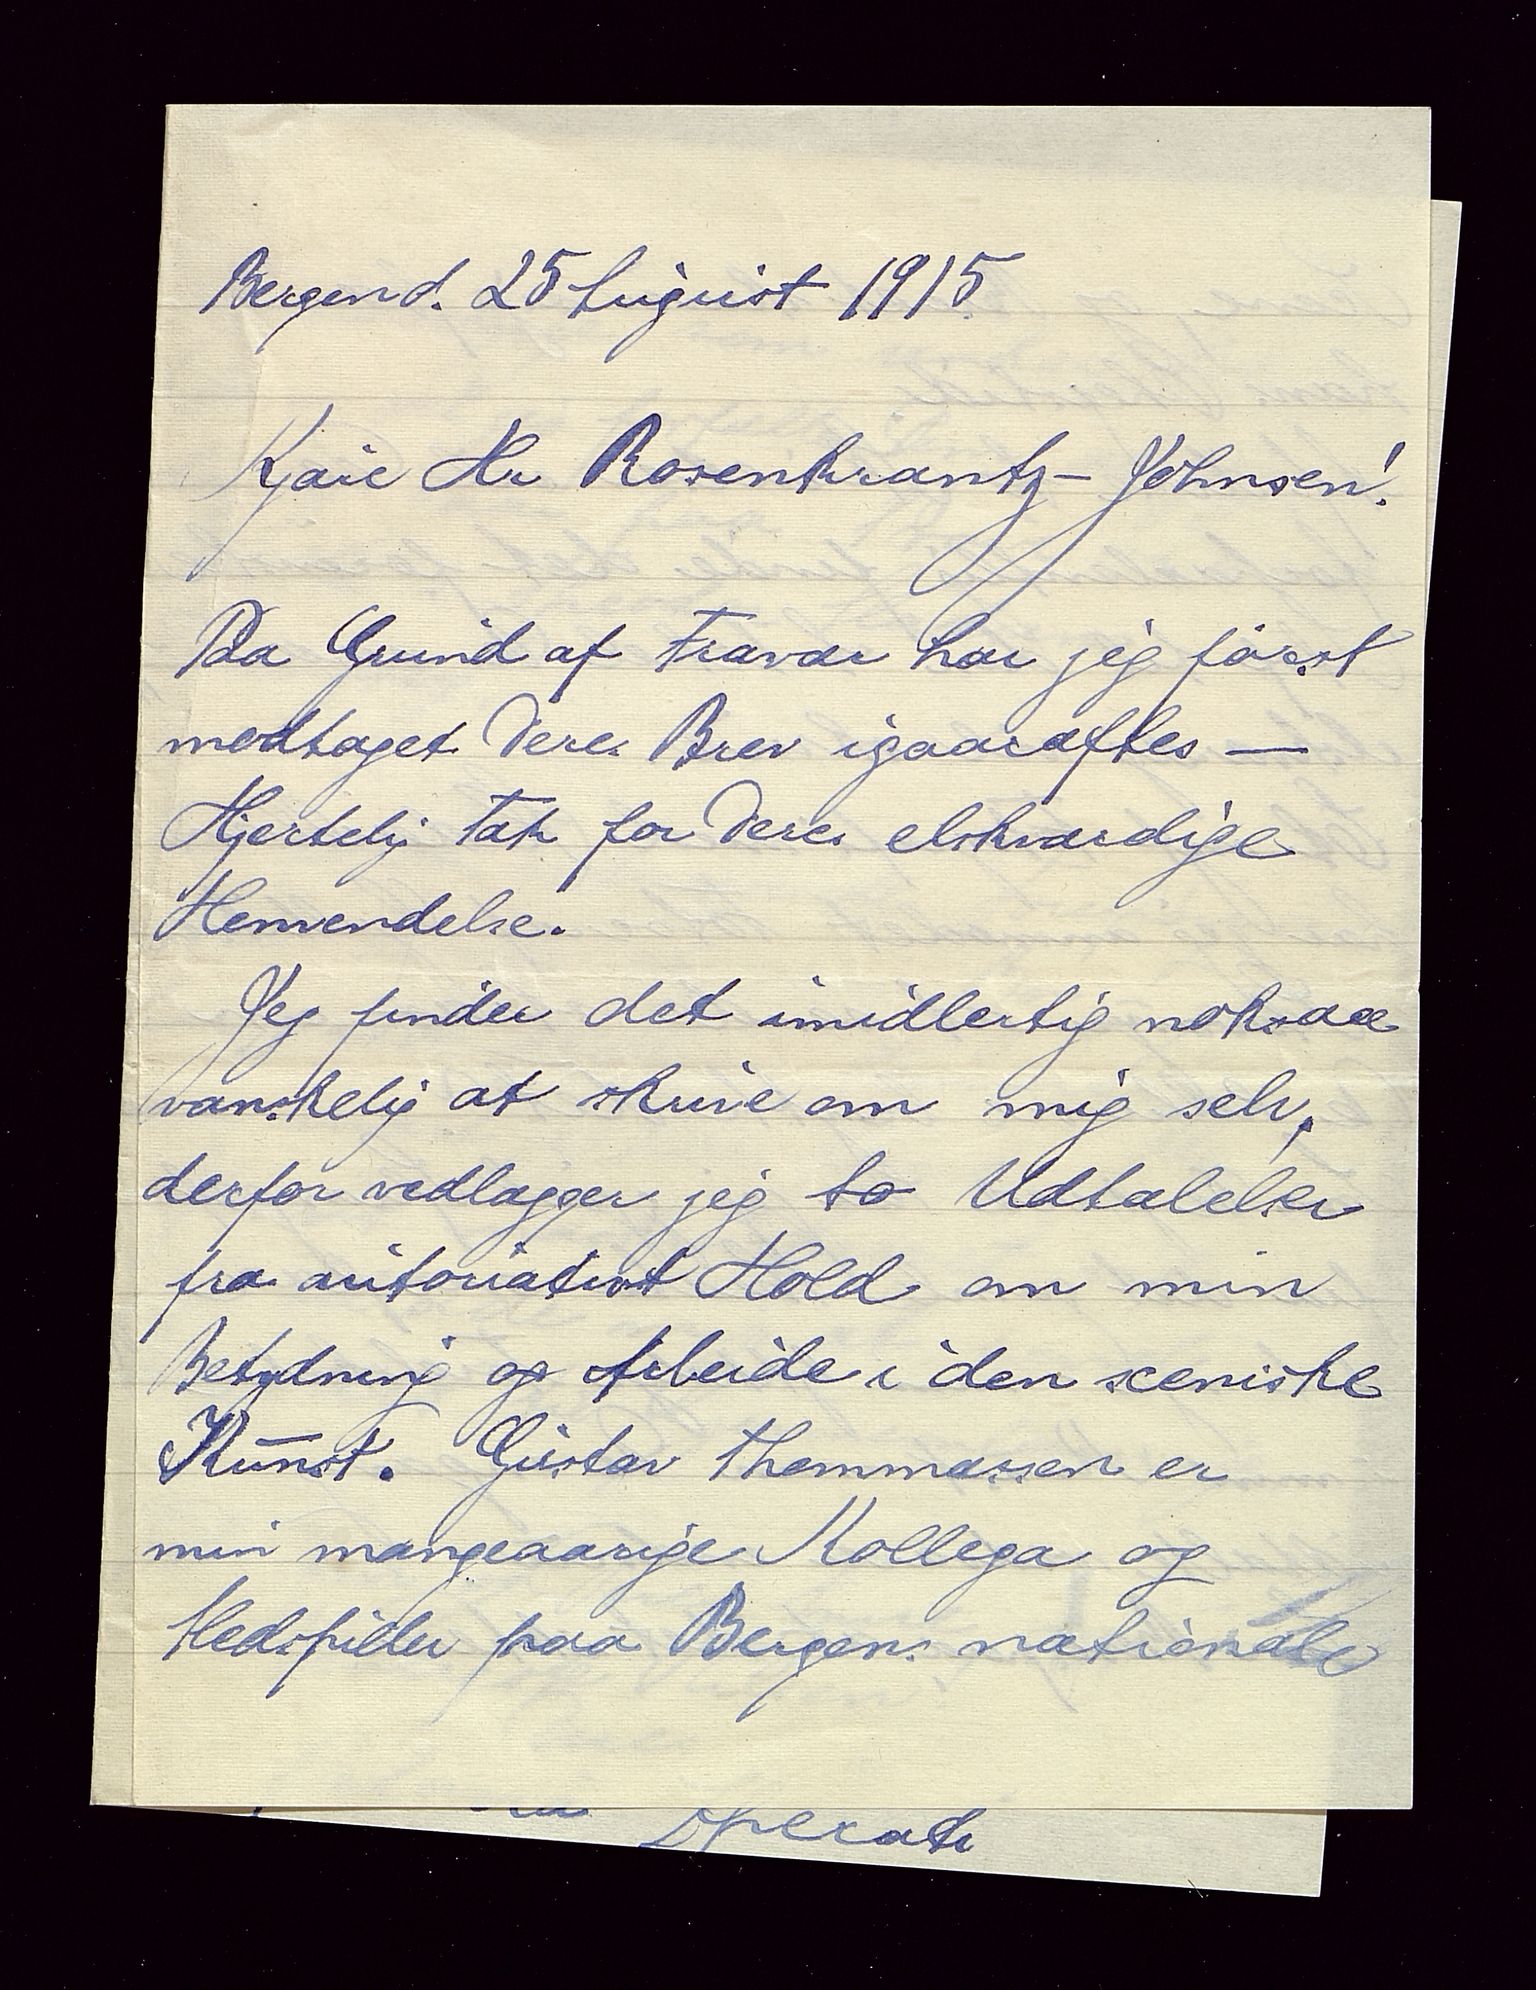 Bergen d. 25 August 1915
Kjære Hr Rosenkrantz-Johnsen!
Paa Grund af Fravær har jeg först
modtaget Deres Brev igaaraftes —
Hjertelig Tak for Deres elskværdige
Henvendelse.
Jeg finder det imidlertig noksaa
vanskelig at skrive om mig selv,
derfor vedlægger jeg to Udtalelser
fra autoriativt Hold om min
Betydning og Arbeide i den sceniske
Kunst. Gustav Thommassen er
min mangeaarige Kollega og
Medspiller paa Bergens nationale